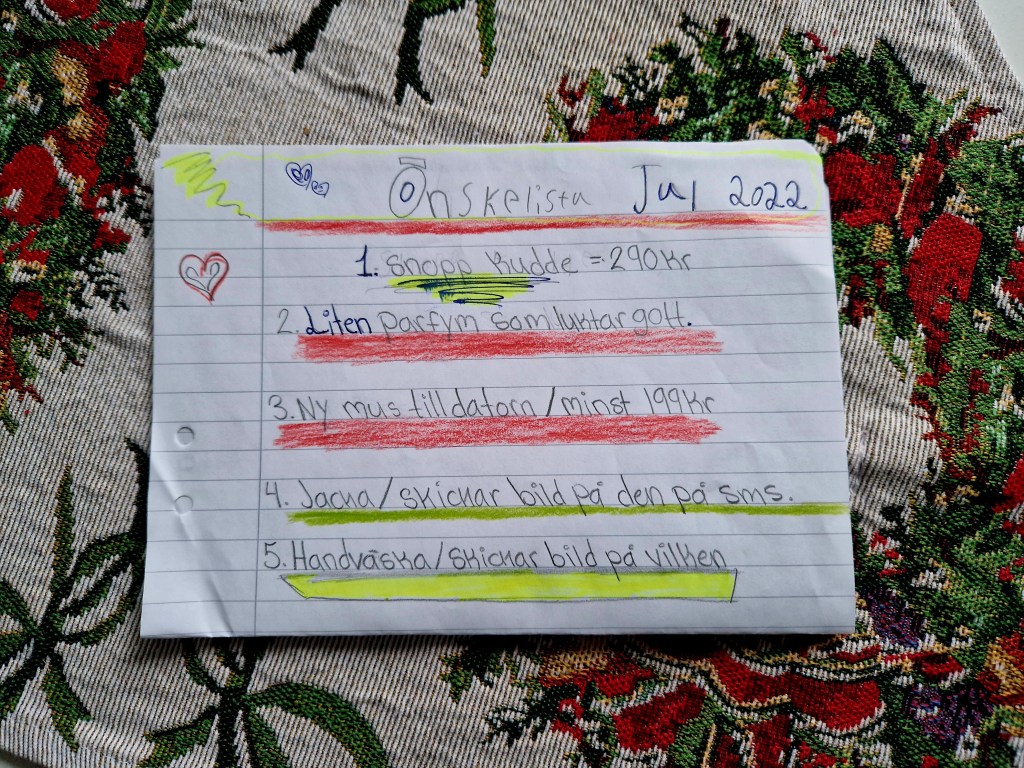 Önskelista Jul 2022
1. Snopp Kudde = 290Kr
2. Liten parfym som luktar gott.
3. Ny mus till datorn / minst 199Kr
4. Jacka / skickar bild på den på sms.
5. Handväska / skickar bild på vilken